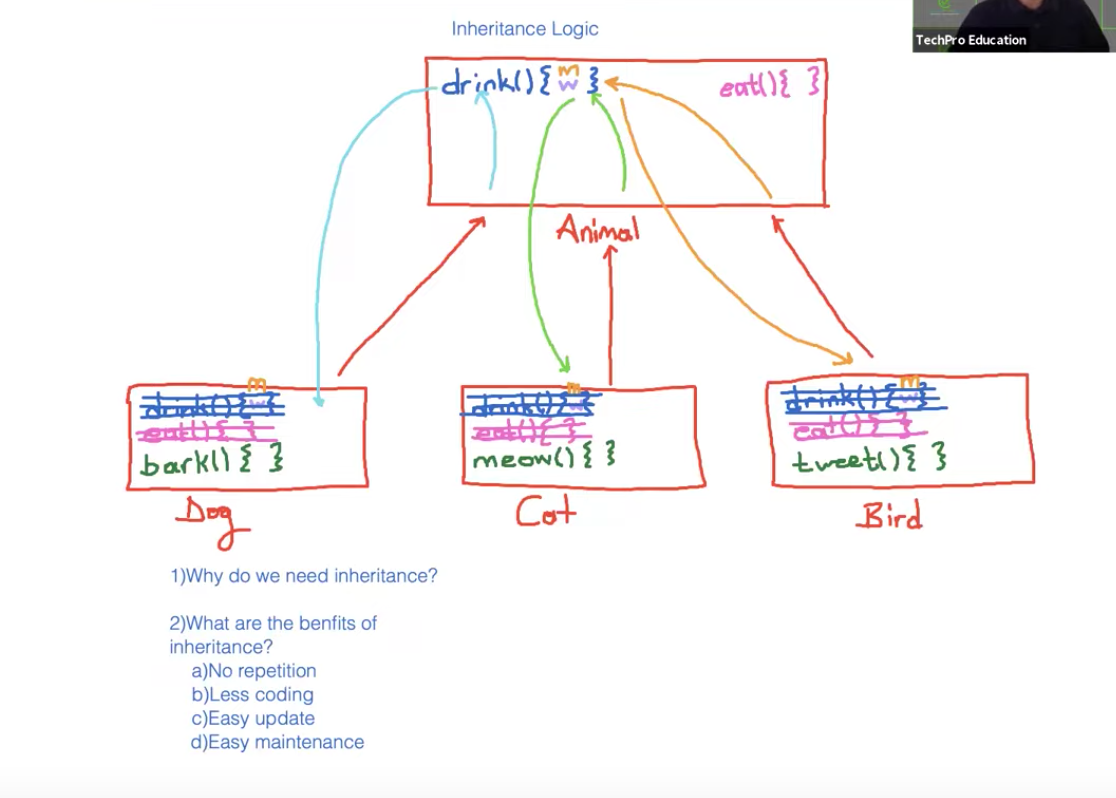 Inheritance Logic
TechPro Education
drink(){ m w }
eat(){ }
Animal
m
drink(){ w }
eat(){ }
bark(){ }
Dog
m
drink(){ w }
eat(){ }
meow(){ }
Cat
m
drink(){ w }
eat(){ }
tweet(){ }
Bird
1)Why do we need inheritance?
2)What are the benfits of
inheritance?
a)No repetition
b)Less coding
c)Easy update
d)Easy maintenance